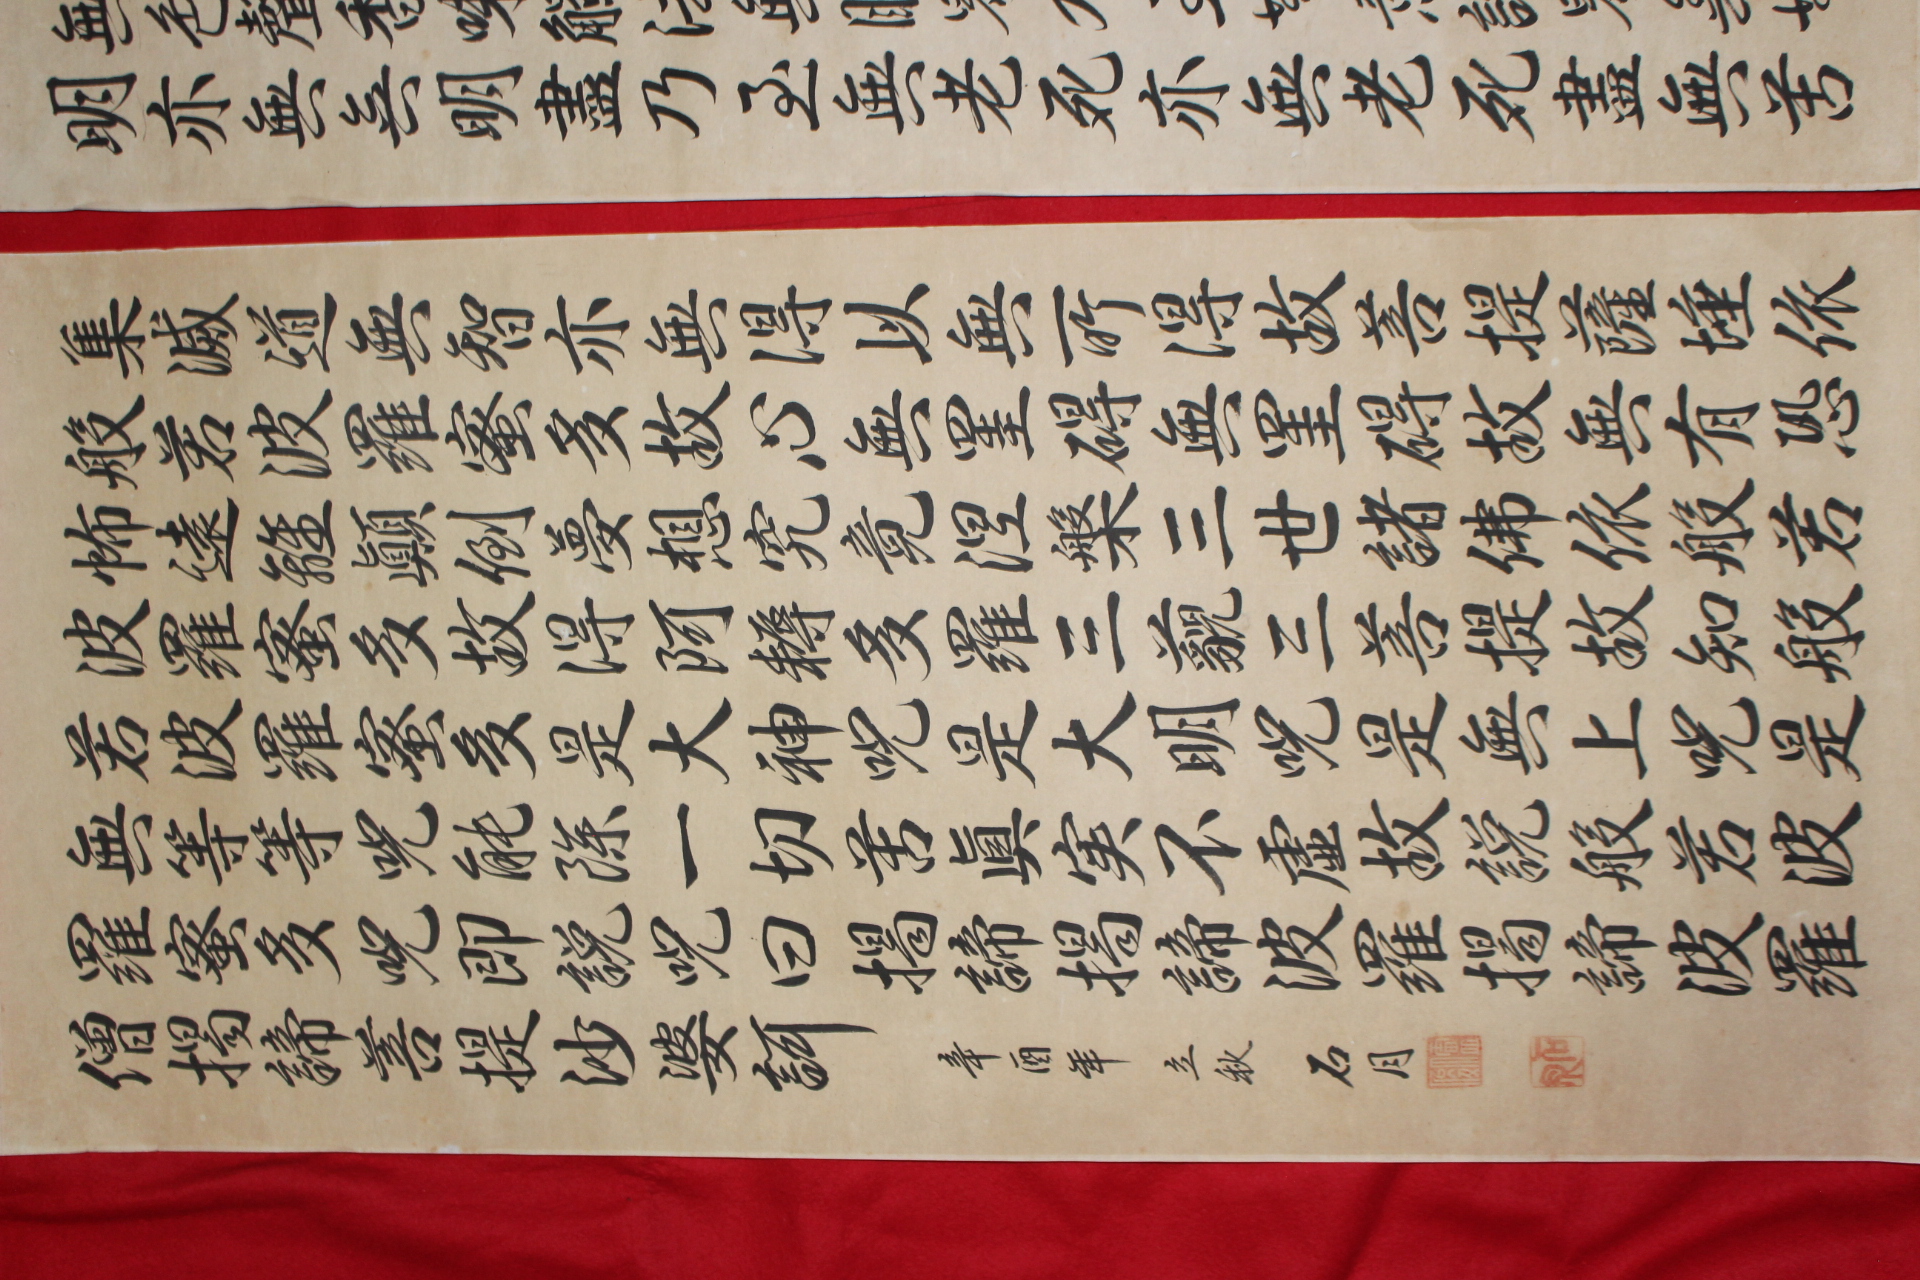 明亦無無明盡乃至無老死亦無老死盡無苦
集滅道無智亦無得以無所得故菩提薩埵依
般若波羅蜜多故心無罣碍無罣碍故無有恐
怖遠離顛倒夢想究竟涅槃三世諸佛依般若
波羅蜜多故得阿耨多羅三藐三菩提故知般
若波羅蜜多是大神呪是大明呪是無上呪是
無等等呪能除一切苦眞実不虛故說般若波
羅蜜多呪即說呪曰揭諦揭諦波羅揭諦波羅
僧揭諦菩提沙婆訶 辛酉年 立秋 石月